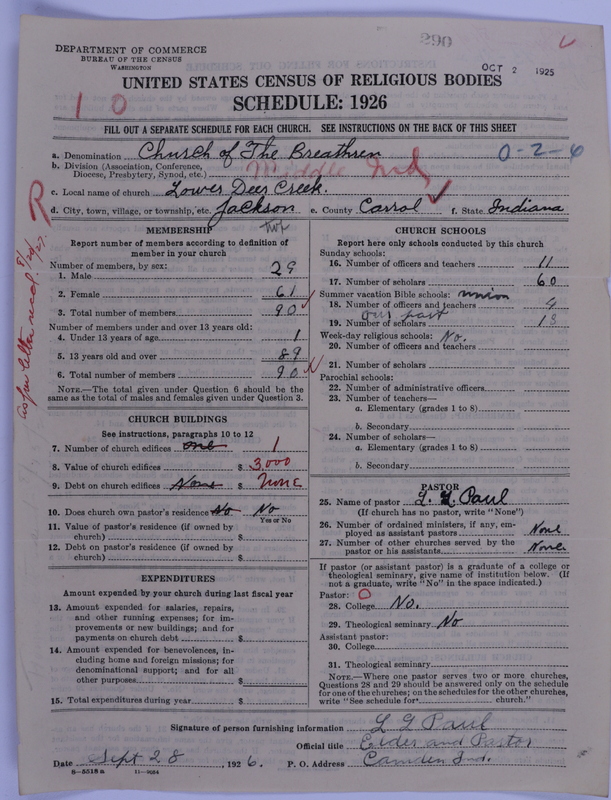 290
DEPARTMENT OF COMMERCE
BUREAU OF THE CENSUS
WASHINGTON
OCT 2 1925
UNITED STATES CENSUS OF RELIGIOUS BODIES
SCHEDULE: 1926
1 0
FILL OUT A SEPARATE SCHEDULE FOR EACH CHURCH. SEE INSTRUCTIONS ON THE BACK OF THIS SHEET
a. Denomination Church of The Breathren
0-2-6
b. Division (Association, Conference, Diocese, Presbytery, Synod, etc.) Middle Ind
c. Local name of church Lower Deer Creek.
d. City, town, village, or township, etc. Jackson e. County Carrol f. State Indiana
MEMBERSHIP twp
Report number of members according to definition of
member in your church
Number of members, by sex:
1. Male 29
2. Female 61
3. Total number of members 90
Number of members under and over 13 years old:
4. Under 13 years of age 1
5. 13 years old and over 89
6. Total number of members 90
NOTE.—The total given under Question 6 should be
same as the total of males and females given under Question 3.
CHURCH BUILDINGS
See instructions, paragraphs 10 to 12
7. Number of church edifices one 1
8. Value of church edifices $ 3,000
9. Debt on church edifices None $ none
10. Does church own pastor's residence? No No
Yes or No
11. Value of pastor's residence (if owned by
church) $
12. Debt on pastor's residence (if owned by
church) $
EXPENDITURES
Amount expended by your church during last fiscal year
13. Amount expended for salaries, repairs,
and other running expenses; for im-
provements or new buildings; and for
payments on church debt $
14. Amount expended for benevolences, in-
cluding home and foreign missions; for
denominational support; and for all
other purposes $
15. Total expenditures during year $
CHURCH SCHOOLS
Report here only schools conducted by this church
Sunday schools:
16. Number of officers and teachers 11
17. Number of scholars 60
Summer vacation Bible schools: union
18. Number of officers and teachers 4
our part
19. Number of scholars 18
Week-day religious schools: No.
20. Number of officers and teachers
21. Number of scholars
Parochial schools:
22. Number of administrative officers
23. Number of teachers—
a. Elementary (grades 1 to 8)
b. Secondary
24. Number of scholars—
a. Elementary (grades 1 to 8)
b. Secondary
PASTOR
25. Name of pastor L. G. Paul
(If church has no pastor, write "None")
26. Number of ordained ministers, if any, em-
ployed as assistant pastors None
27. Number of other churches served by the
pastor or his assistants None.
If pastor (or assistant pastor) is a graduate of a college or
theological seminary, give name of institution below. (If
not a graduate, write "No" in the space indicated.)
Pastor: 0
28. College No.
29. Theological seminary No
Assistant pastor:
30. College
31. Theological seminary
NOTE.—Where one pastor serves two or more churches,
Questions 28 and 29 should be answered only on the schedule
for one of the churches; on the schedules for the other churches,
write "See schedule for church."
Signature of person furnishing information L G Paul
Official title Elder and Pastor
Date Sept 28, 1926. P. O. Address Camden Ind.
8-5518 a 11-9054